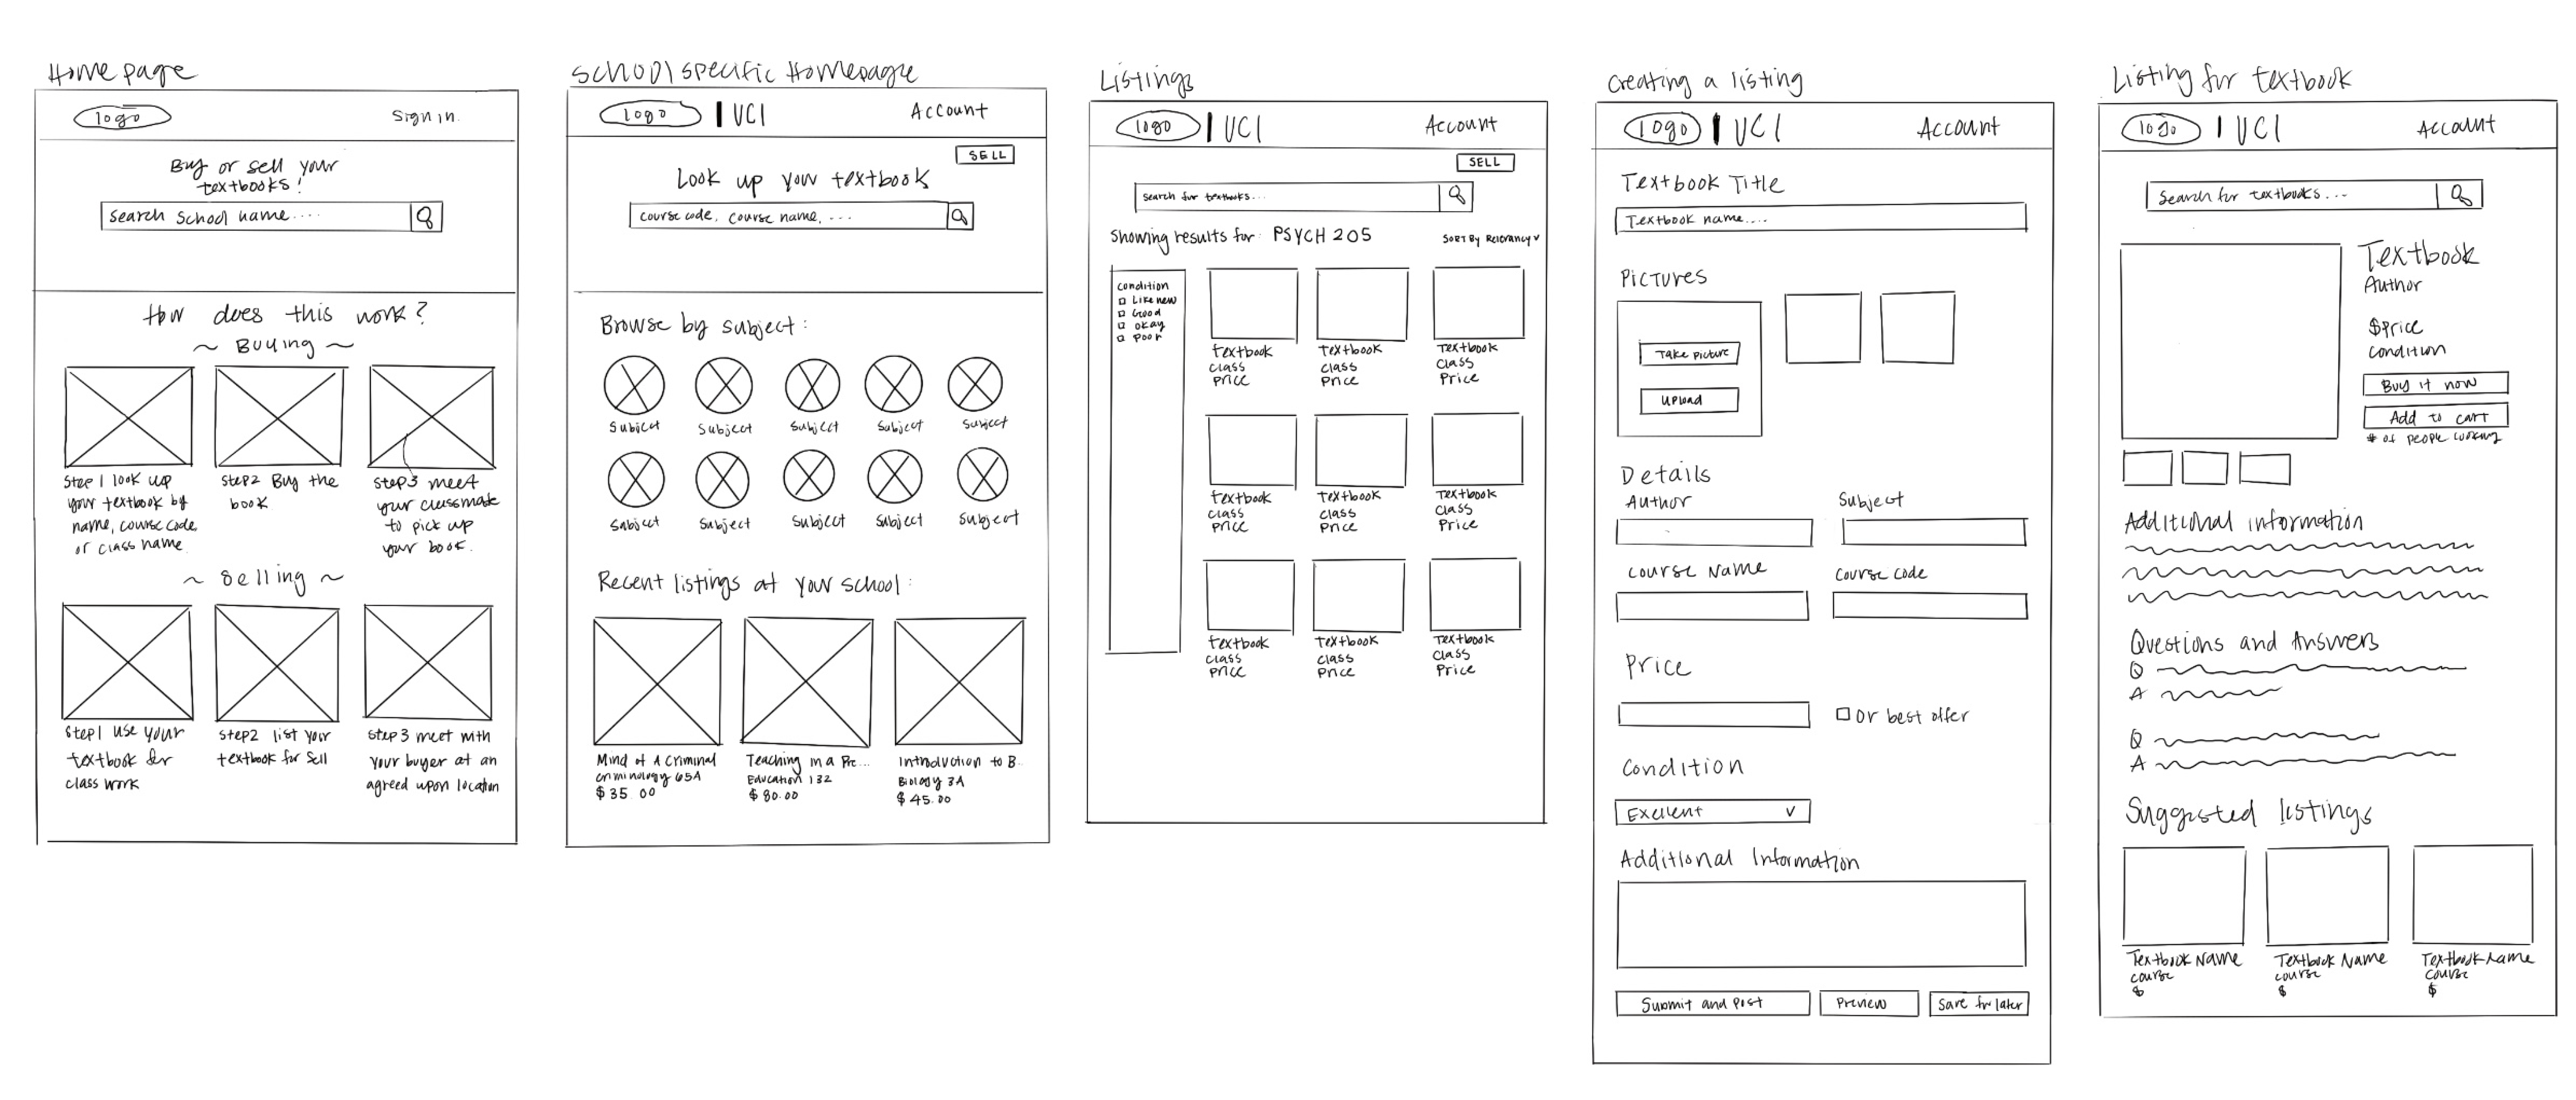 Home page
logo
Sign in.
Buy or sell your
textbooks!
search school name....
How does this work?
~ Buying ~
Step 1 look up
your textbook by
name, course code,
or class name
Step 2 Buy the
book
Step 3 meet
your classmate
to pick up
your book.
~ Selling ~
Step 1 use your
textbook for
class work
Step 2 list your
textbook for sell
Step 3 meet with
your buyer at an
agreed upon location
School specific Homepage
logo | UCI
Account
SELL
Look up your textbook
course code, course name, ...
Browse by subject:
Subject
Subject
Subject
Subject
Subject
Subject
Subject
Subject
Subject
Subject
Recent listings at your school:
Mind of A Criminal
Criminology 65A
$35 00
Teaching in a Pre...
Education 132
$80.00
Introduction to B..
Biology 3A
$45.00
Listings
logo | UCI
Account
SELL
Search for textbooks...
Showing results for PSYCH 205
SORT By Relevancy v
Condition
Like new
Good
okay
Poor
Textbook
Class
Price
Textbook
Class
Price
Textbook
Class
Price
Textbook
Class
Price
Textbook
Class
Price
Textbook
Class
Price
Textbook
Class
Price
Textbook
Class
Price
Textbook
Class
Price
Creating a listing
logo | UCI
Account
Textbook Title
Textbook name....
Pictures
Take picture
Upload
Details
Author
Subject
Course Name
Course Code
Price
Or best offer
Condition
Exellent v
Additional Information
Submit and Post
Preview
Save for later
Listing for textbook
logo | UCI
Account
Search for textbooks...
Textbook
Author
$Price
Condition
Buy it now
Add to cart
# of people looking
Additional information
Questions and Answers
Q
A
Q
A
Suggested listings
Textbook Name
course
$
Textbook Name
course
$
Textbook name
course
$